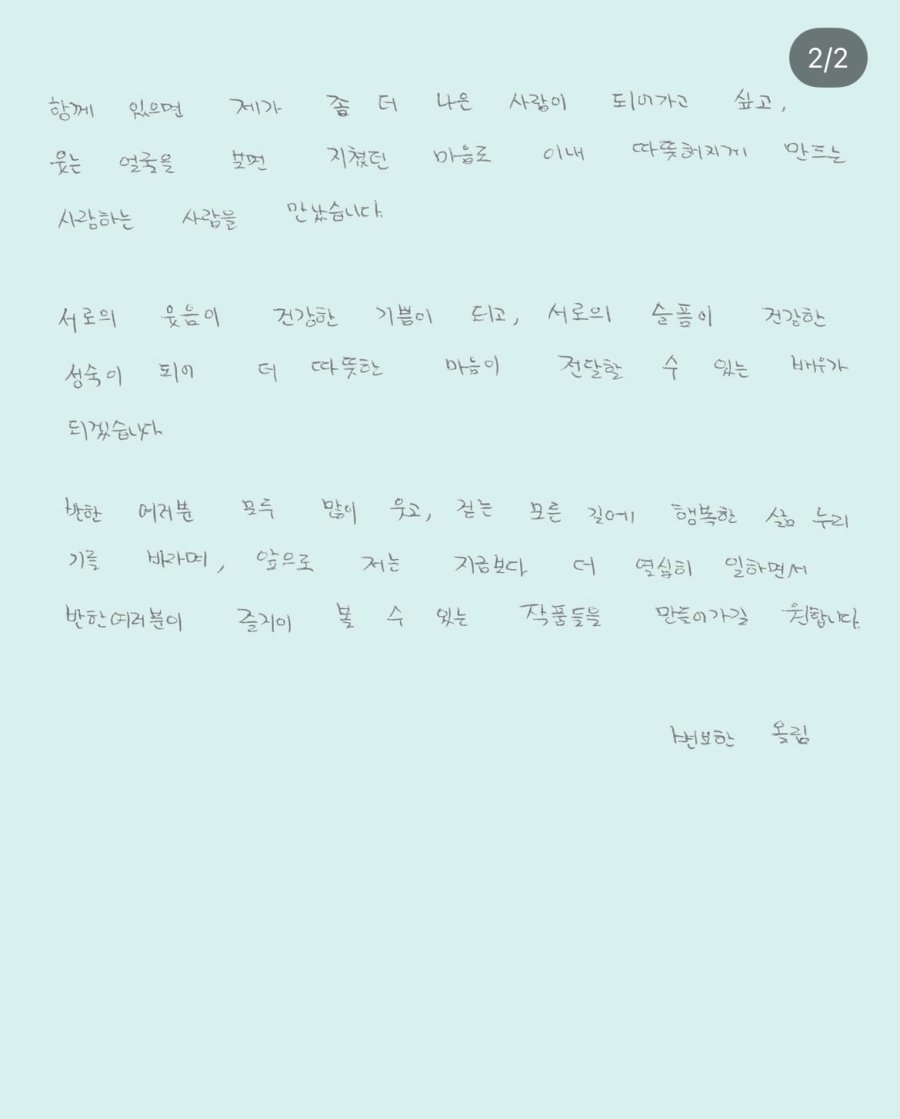 2/2
함께 있으면 제가 좀 더 나은 사람이 되어가고 싶고,
웃는 얼굴을 보면 지쳤던 마음도 이내 따뜻해지게 만드는
사랑하는 사람을 만났습니다.
서로의 웃음이 건강한 기쁨이 되고, 서로의 슬픔이 건강한
성숙이 되어 더 따뜻한 마음이 전달할 수 있는 배우가
되겠습니다.
반한 여러분 모두 많이 웃고, 걷는 모든 길에 행복한 삶 누리
기를 바라며, 앞으로 저는 지금보다 더 열심히 일하면서
반한여러분이 즐거이 볼 수 있는 작품들을 만들어가길 원합니다.
변요한 올림